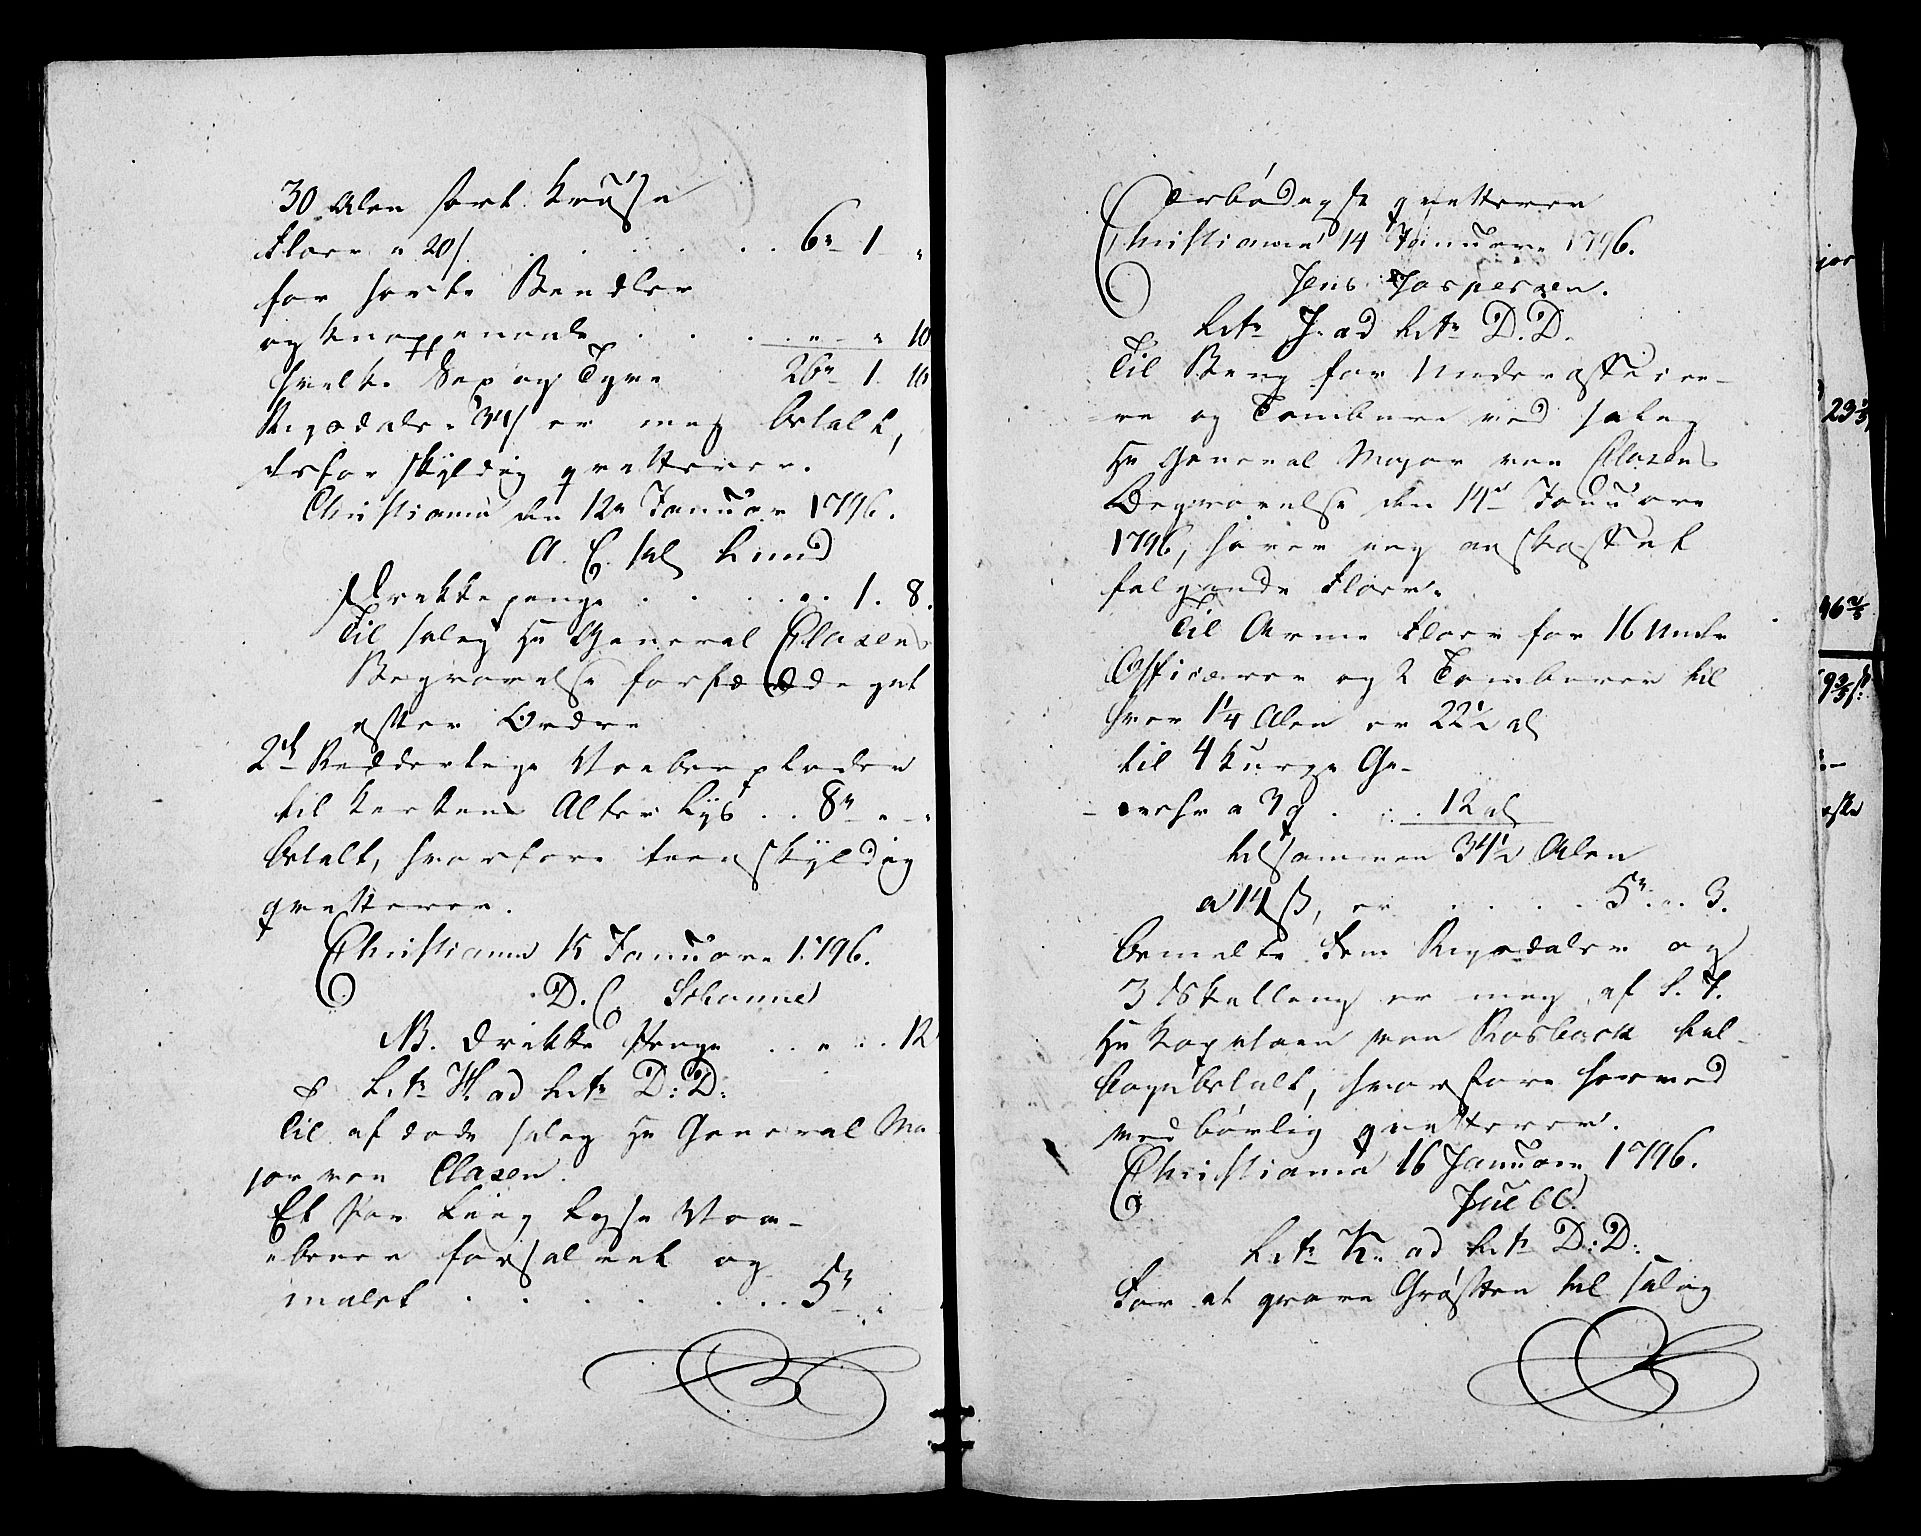 30 Alen sort Krusse
Floer a 20 s . . . . . 6 r 1 "
for sorte Bendler
og Knappenaale . . . . " - " 10
hvilke Sex og Tyve 26 r 1. 10
Rigsdaler 34 s er mig betalt,
derfor skyldig qvitterer.
Christiania den 12 Januar 1796.
A. C. sal Lund
Drikkepenge . . . . . 1. 8.
Til salig Hr General Clasens
Begravelse forfærdiget
efter Ordre
2de Redderlige Vaabenplader
til Kirkens Alter Lys . . 8 r " - "
betalt, hvorfore tienskyldig
qvitterer.
Christiania 15 Januari 1796.
D. C. Schanne
NB. Drikke Penge . . " . . 12
Litr H. ad Litr D: D:
Til afdøde salig Hr General Ma
jor von Clasen.
Et Par Liig Lyse Vaa-
bener forsølvet og
malet . . . . . . . 5 r
ærbødigst qvitterer
Christiania 14 Januari 1796.
Jens Jaspersen.
Litr J. ad Litr D. D.
Til Brug for Underofficee-
re og Tambure ved salig
Hr General Major von Clasens
Begravelse den 14de Januari
1796, haver ieg anskaffet
følgende Floer.
Til Arme Floer for 16 Under
Officerer og 2 Tamburer til
hver 1¼ Alen er 22½ al
til 4 Kurze Ge-
wehr a 3 q . . . 12 al
tilsammen 34½ Alen
a 14 ß, er . . . . 5 r " . 3.
bemelte Fem Rigsdaler og
3 Skilling er mig af S. T.
Hr Kapitaen von Rosbach til-
bagebetalt, hvorfore herved
med børlig qvitterer.
Christiania 16 Januari 1796.
Juell.
Litr K. ad Litr D: D:
For at grave Grøften til salig
jor
29
96
9
eske